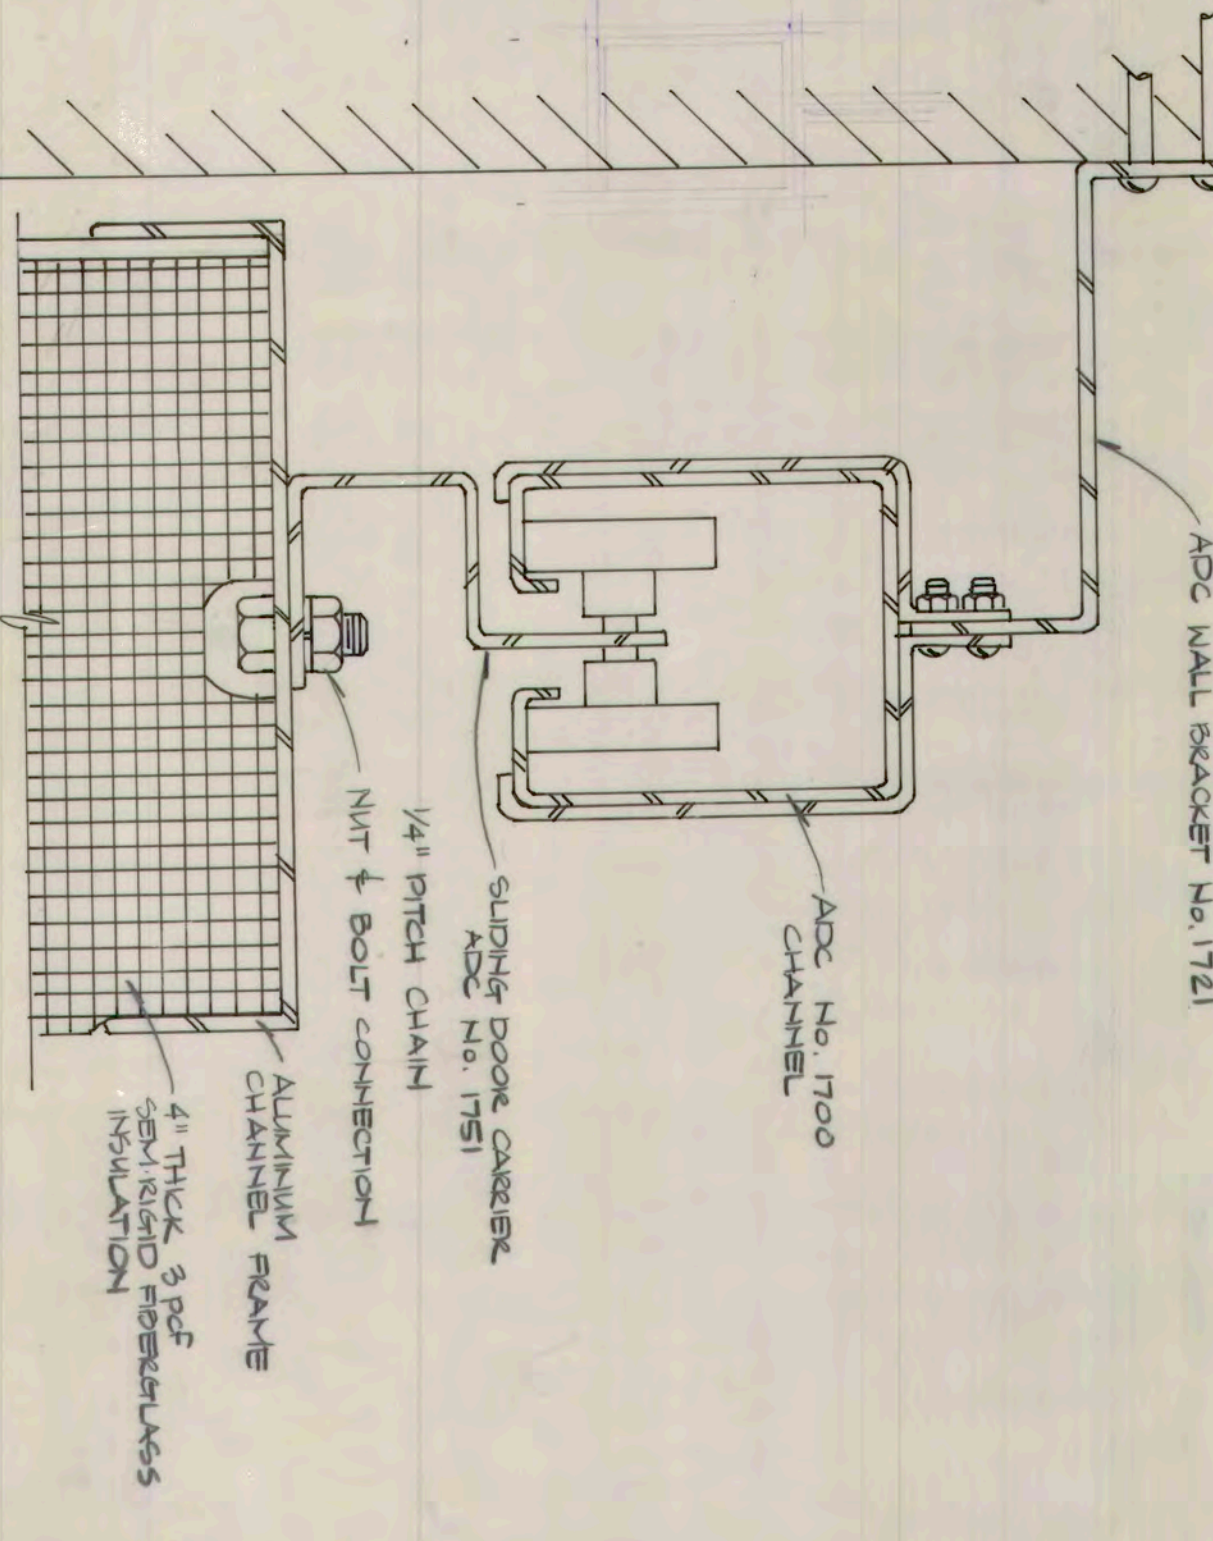 ADC WALL BRACKET No. 1721
ADC No. 1700
CHANNEL
SLIDING DOOR CARRIER
ADC No. 1751
1/4" PITCH CHAIN
NUT & BOLT CONNECTION
ALUMINUM
CHANNEL FRAME
4" THICK 3 pcf
SEMI-RIGID FIBERGLASS
INSULATION